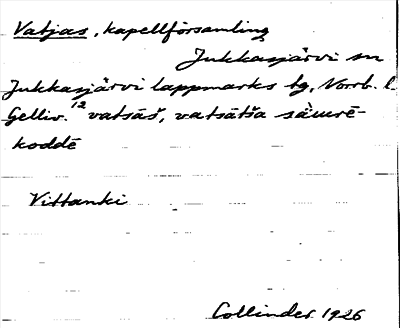 Vatjas, kapellförsamling
Jukkasjärvi sn
Jukkasjärvi lappmarks tg, Norrb. l.
Gelliv. 12 vatsāš, vatsātša
koddē
Vittanki
Collinder 1926